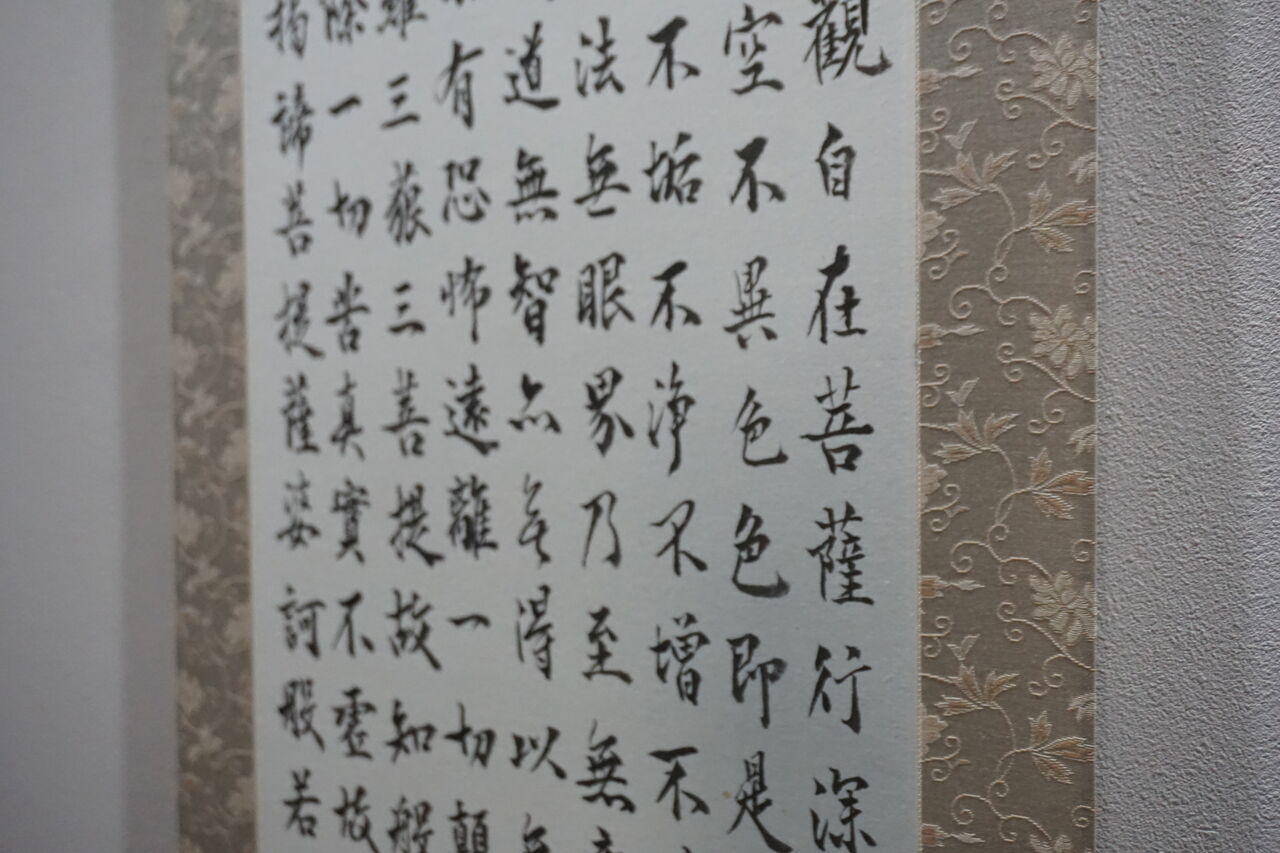 觀自在菩薩行深
空不異色色即是
不垢不淨不增不
法無眼界乃至無
道無智亦無得以無
有恐怖遠離一切顛
三藐三菩提故知般
除一切苦真實不虛故
揭諦菩提薩婆訶般若